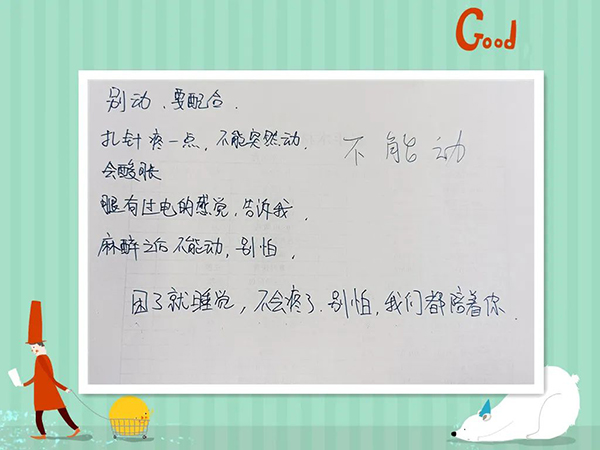 Good
别动、要配合.
扎针疼一点,不能突然动.
不能动
会酸胀
腿有过电的感觉,告诉我.
麻醉之后不能动,别怕.
困了就睡觉,不会疼了.别怕,我们都陪着你.